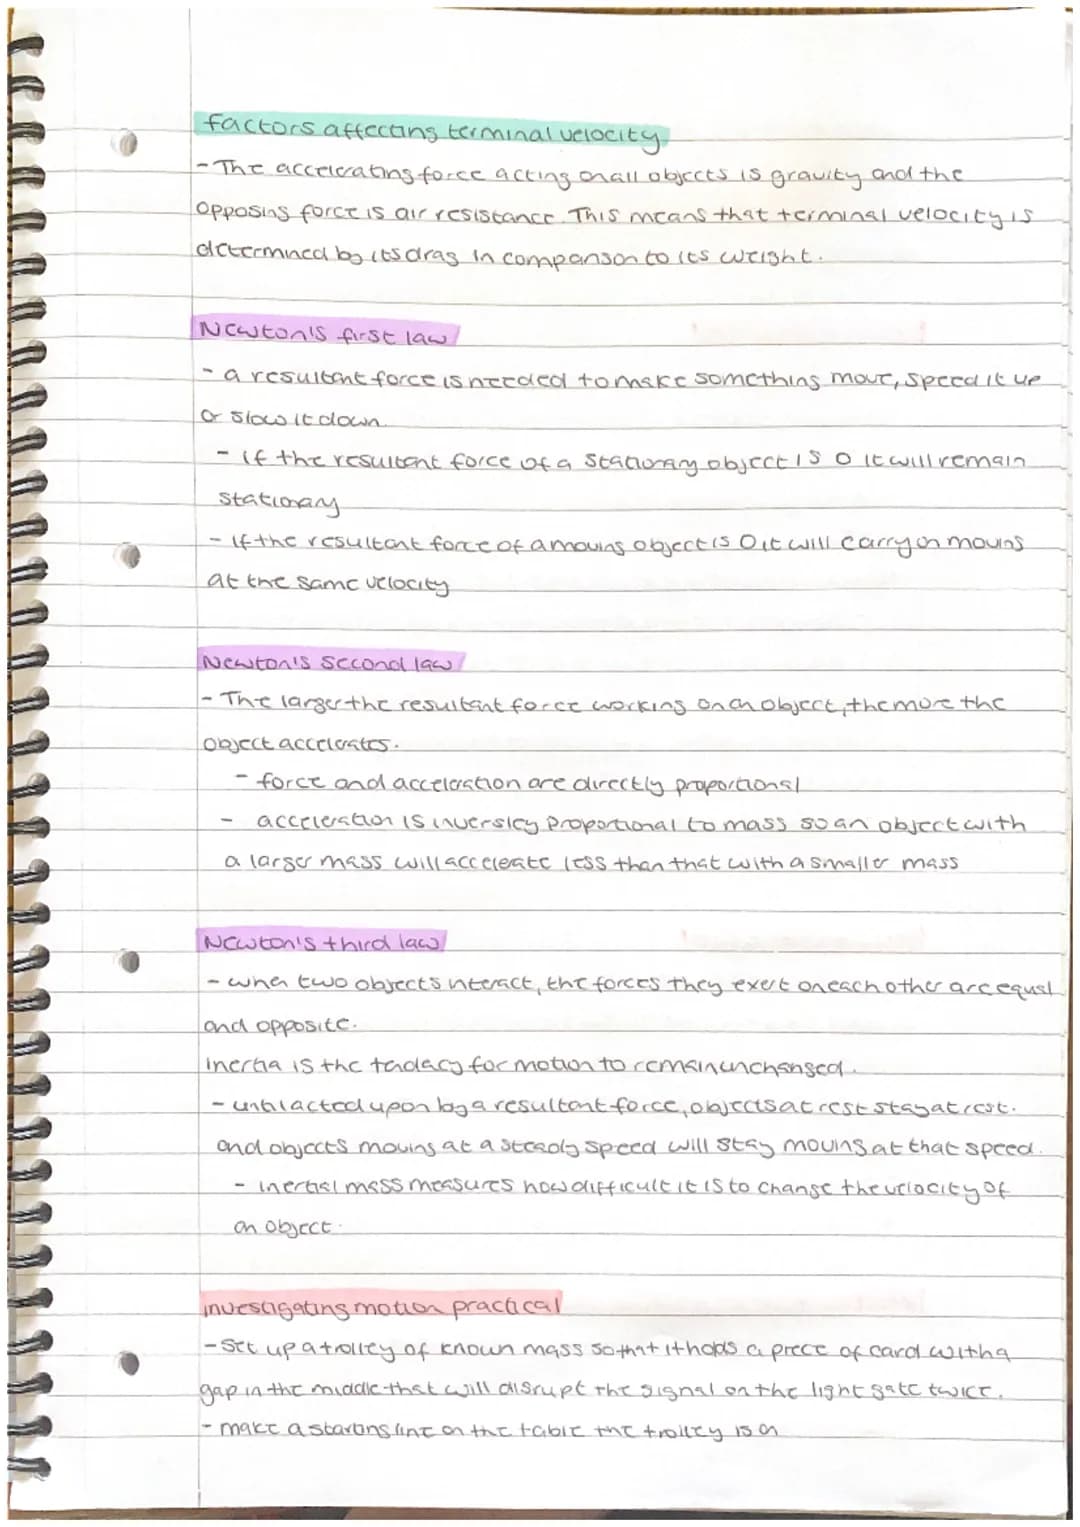 factors affecting terminal velocity
- The accelerating force acting on all objects is gravity and the
opposing force is air resistance. This means that terminal velocity is
determined by its drag in comparison to its weight.
Newton's first law
- a resultant force is needed to make something move, speed it up
or slow it down.
- if the resultant force of a stationary object is 0 it will remain
stationary
- If the resultant force of a moving object is 0 it will carry on moving
at the same velocity
Newton's second law
- The larger the resultant force working on an object, the more the
object accelerates.
- force and acceleration are directly proportional
- acceleration is inversley proportional to mass so an object with
a larger mass will accelerate less than that with a smaller mass
Newton's third law
- when two objects interact, the forces they exert on each other are equal
and opposite.
inertia is the tendacy for motion to remain unchanged.
- until acted upon by a resultant force, objects at rest stay at rest.
and objects moving at a steady speed will stay moving at that speed.
- inertial mass measures how difficult it is to change the velocity of
an object.
investigating motion practical
- set up a trolley of known mass so that it holds a piece of card with a
gap in the middle that will disrupt the signal on the light gate twice.
- make a starting line on the table the trolley is on